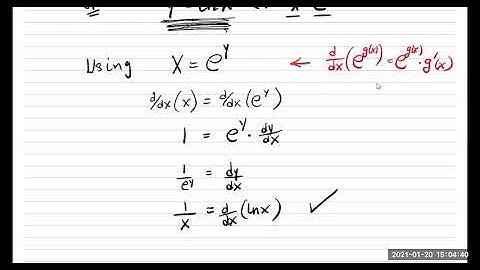 Using x = e^y ← d/dx (e^g(x)) = e^g(x) · g'(x)
d/dx (x) = d/dx (e^y)
1 = e^y · dy/dx
1/e^y = dy/dx
1/x = d/dx (ln x) ✓
2021-01-20 15:04:40